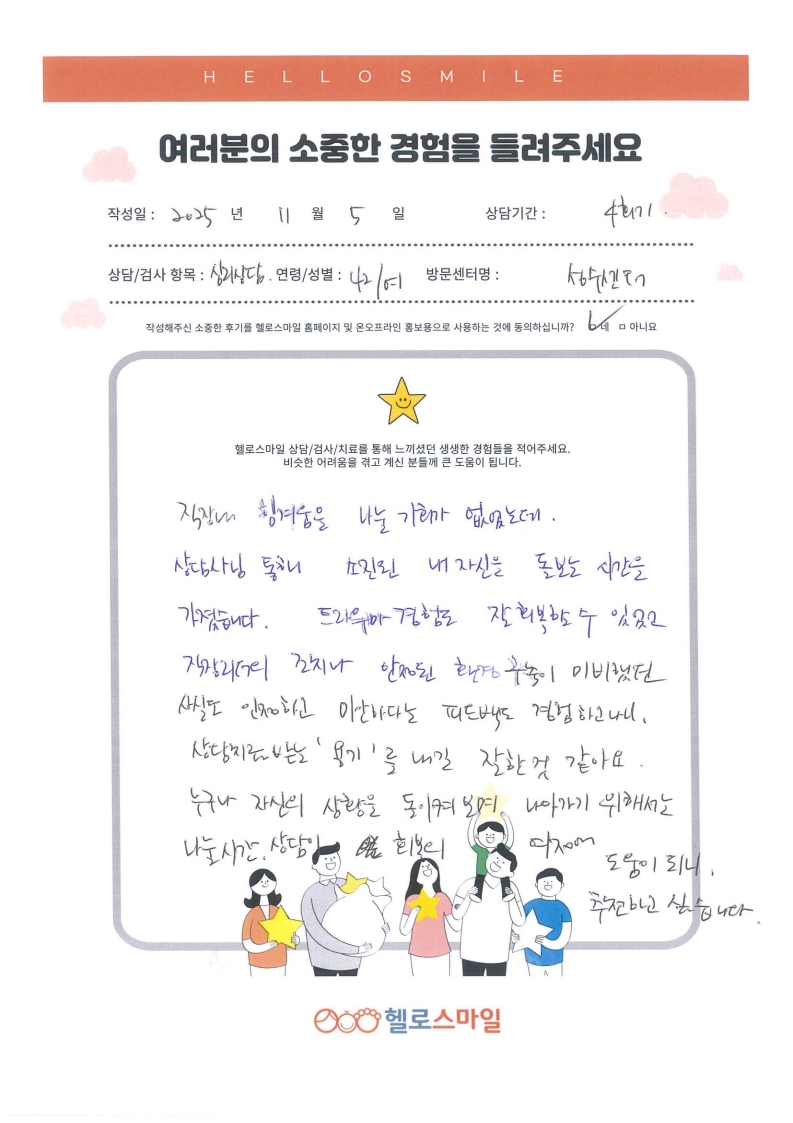 HELLOSMILE
여러분의 소중한 경험을 들려주세요
작성일 : 2025 년 11 월 5 일 상담기간 : 4회기.
상담/검사 항목 : 심리상담. 연령/성별 : 42/여 방문센터명 :
작성해주신 소중한 후기를 헬로스마일 홈페이지 및 온오프라인 홍보용으로 사용하는 것에 동의하십니까? 네 ㅁ 아니요
헬로스마일 상담/검사/치료를 통해 느끼셨던 생생한 경험들을 적어주세요.
비슷한 어려움을 겪고 계신 분들께 큰 도움이 됩니다.
직장내 힘겨움을 나눌 기회가 없었는데.
상담사님 통해 소진된 내 자신을 돌보는 시간을
가졌습니다. 트라우마 경험도 잘 회복할 수 있었고
직장리더의 조치나 안정된 환경 구축이 미비했던
사실도 인정하고 미안하다는 피드백도 경험하고나니,
상담치료 받는 '용기'를 내길 잘한 것 같아요.
누구나 자신의 상황을 돌이켜 보며, 나아가기 위해서는
나눌시간, 상담이 회복의 여정에
도움이 되니,
추천하고 싶습니다.
헬로스마일